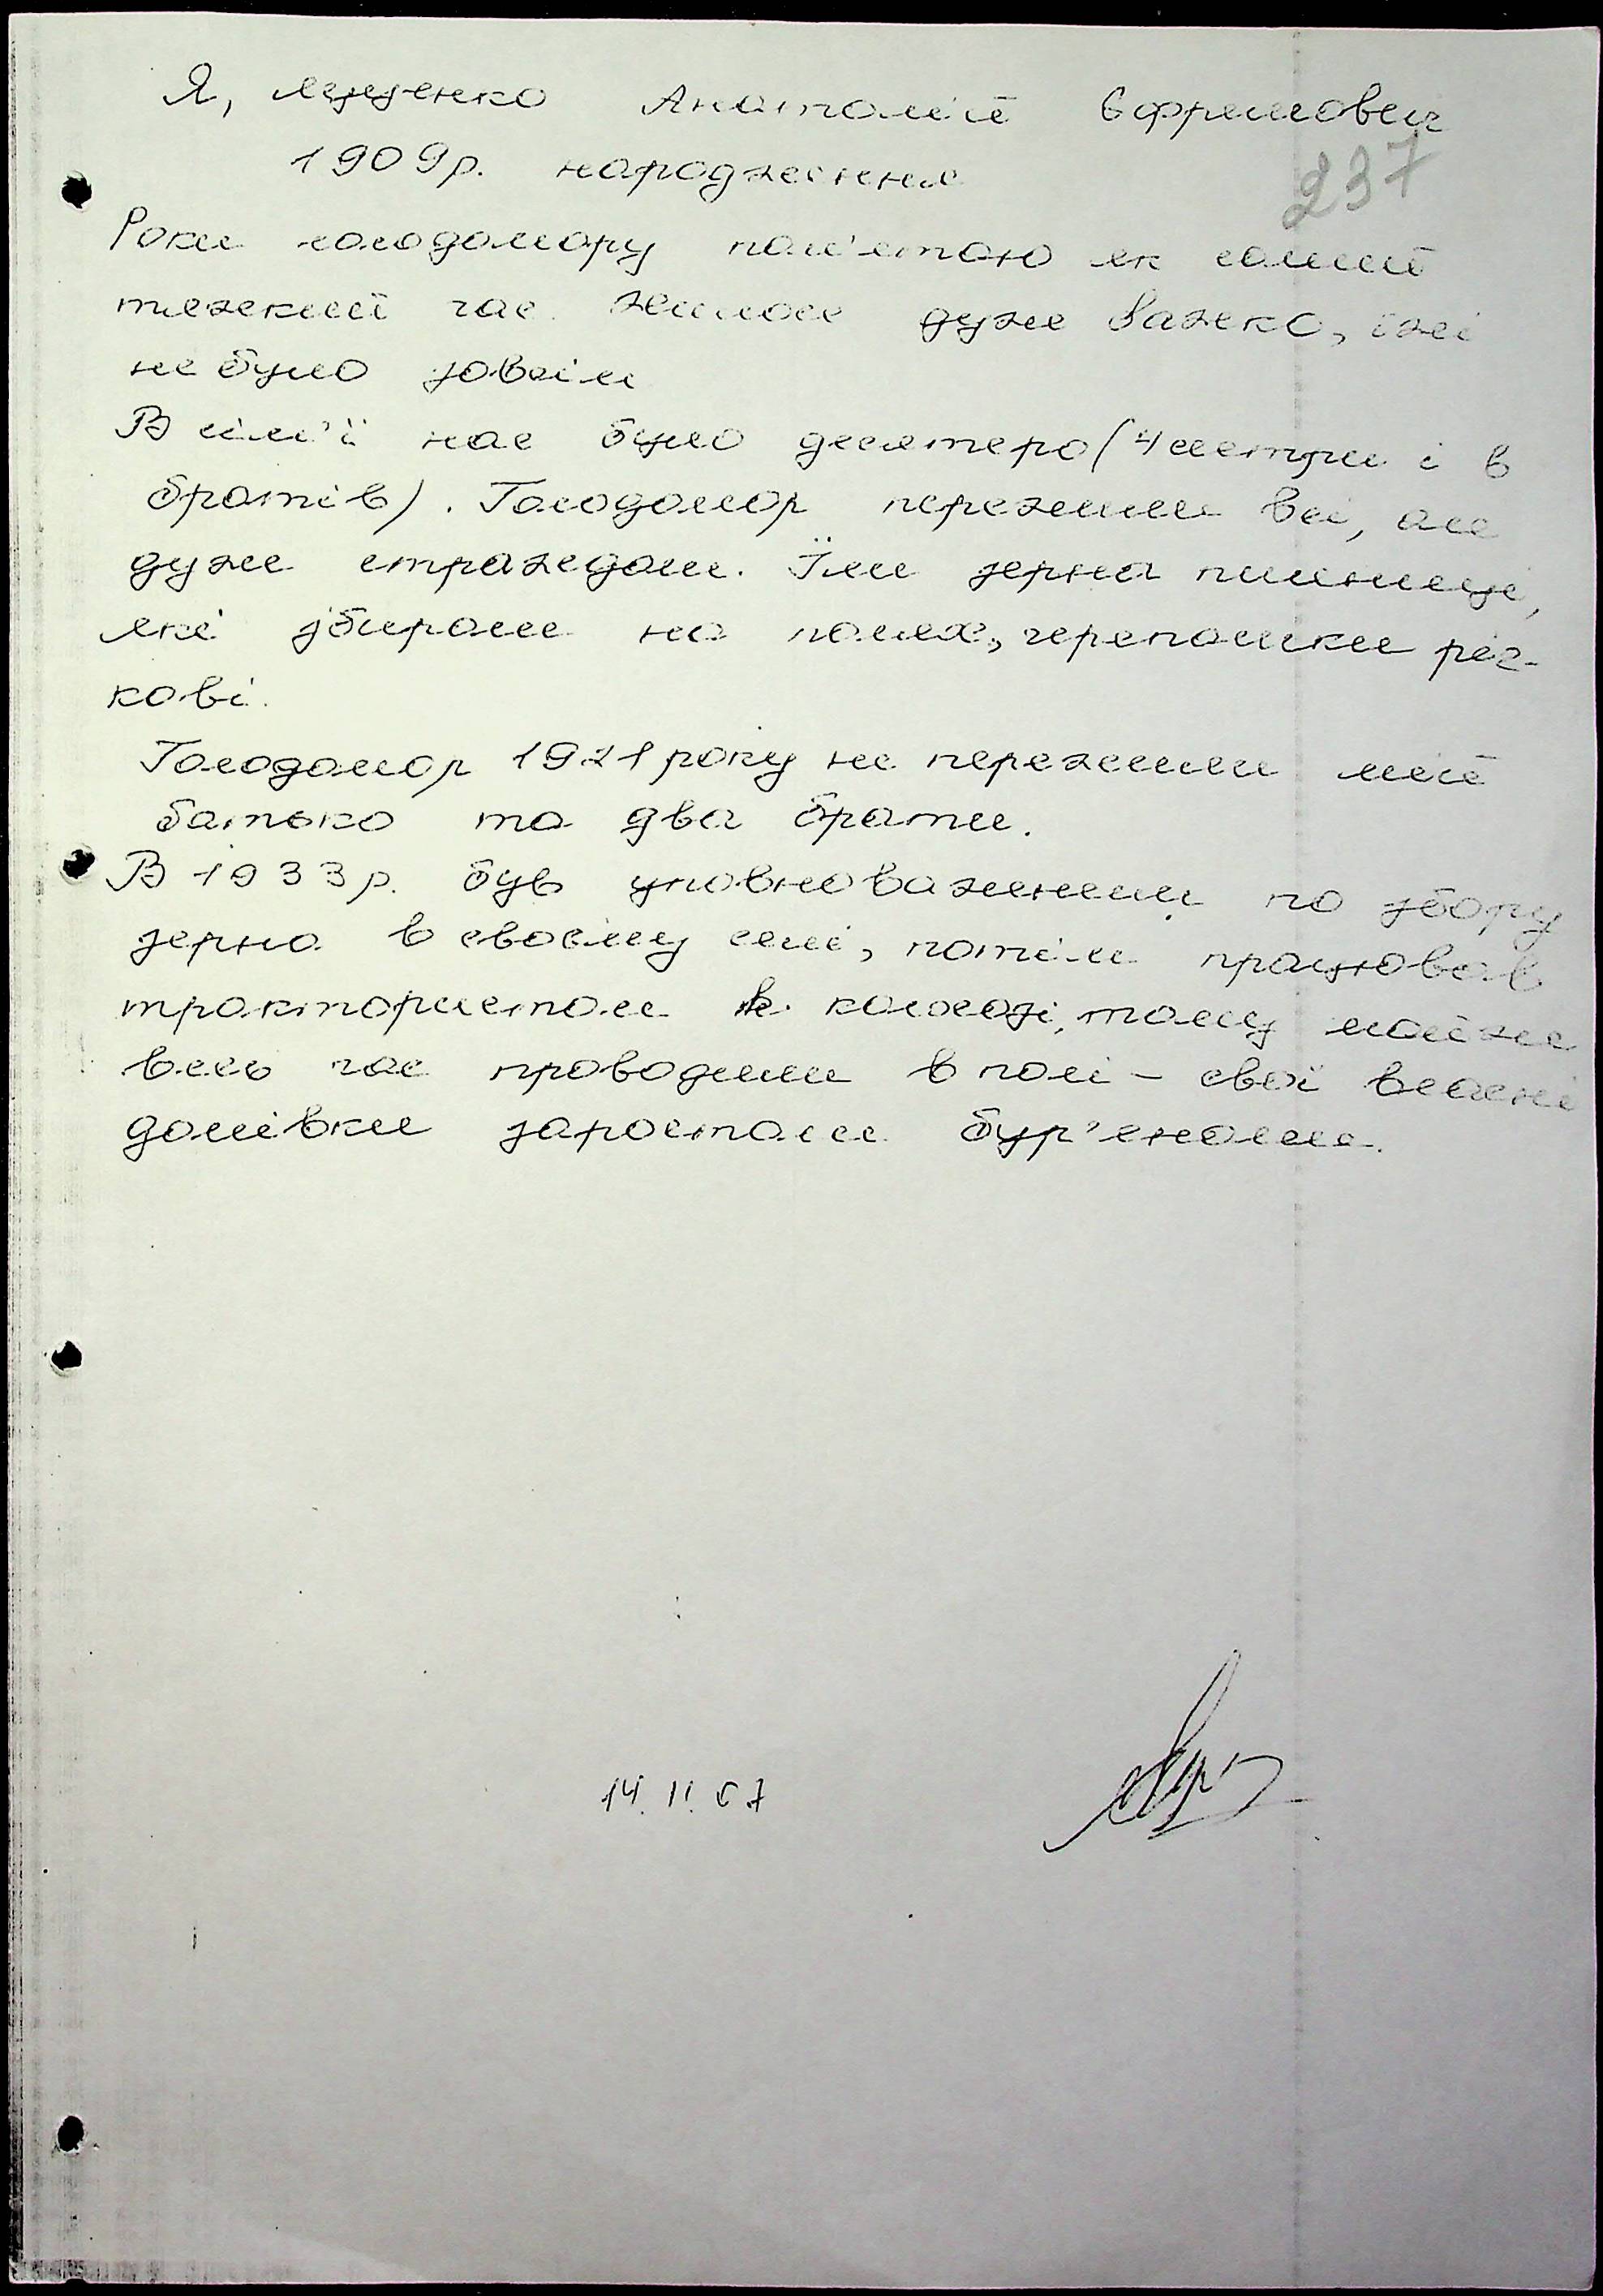 Я, Анатолій Єфремович
237
1909р. народження
Роки голодомору пам'ятаю як самий
тяжкий час. Жилося дуже важко, їжі
не було зовсім
В сім'ї нас було десятеро (4 сестри і 6
братів). Голодомор пережили всі, але
дуже страждали. Їли зерна пшениці,
які збирали на полях, черепашки річ-
кові.
Голодомор 1921 року не пережили мій
батько та два брати.
В 1933р. був уповноваженим по збору
зерна в своєму селі, потім працював
трактористом в колгозі, тому майже
весь час проводили в полі – свої власні
домівки заростали бур'янами.
14.11.07